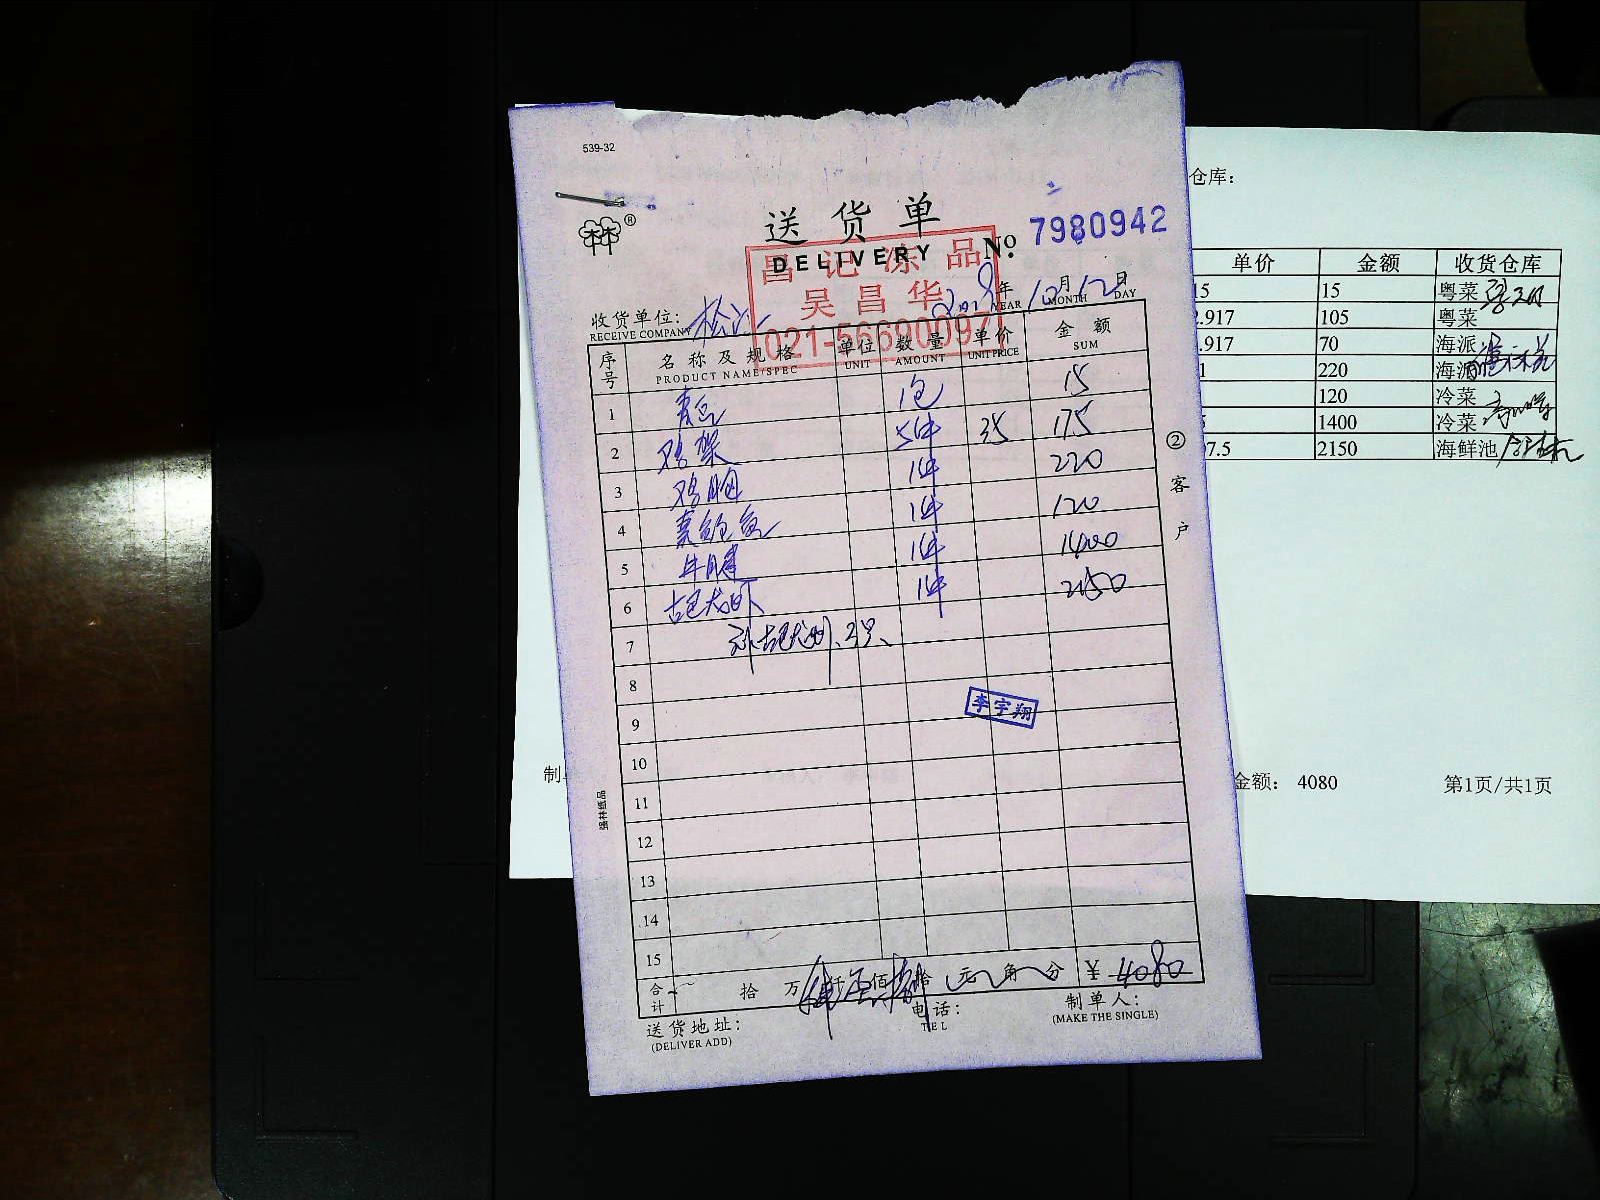 539-32
林®
送货单
DELIVERY
No. 7980942
昌记冻品
吴昌华
021-56690097
2018年10月12日
YEAR MONTH DAY
收货单位: 松江
RECEIVE COMPANY
序号 名称及规格 单位 数量 单价 金额
PRODUCT NAME/SPEC UNIT AMOUNT UNIT PRICE SUM
1 青豆 1包 15
2 鸡架 5件 35 175
3 鸡胸 1件 220
4 1件 120
5 牛腱 1件 1400
6 古巴龙虾 1件 2150
7
8
9
李宇翔
10
11
12
13
14
15
合计 拾 万 仟 佰 拾 元 角 分 ¥ 4080
送货地址:
(DELIVER ADD)
电话:
TEL
制单人:
(MAKE THE SINGLE)
②客户
强林纸品
仓库:
单价 金额 收货仓库
15 15 粤菜
.917 105 粤菜
.917 70 海派
220 海派
120 冷菜
1400 冷菜
7.5 2150 海鲜池
制单
金额: 4080
第1页/共1页